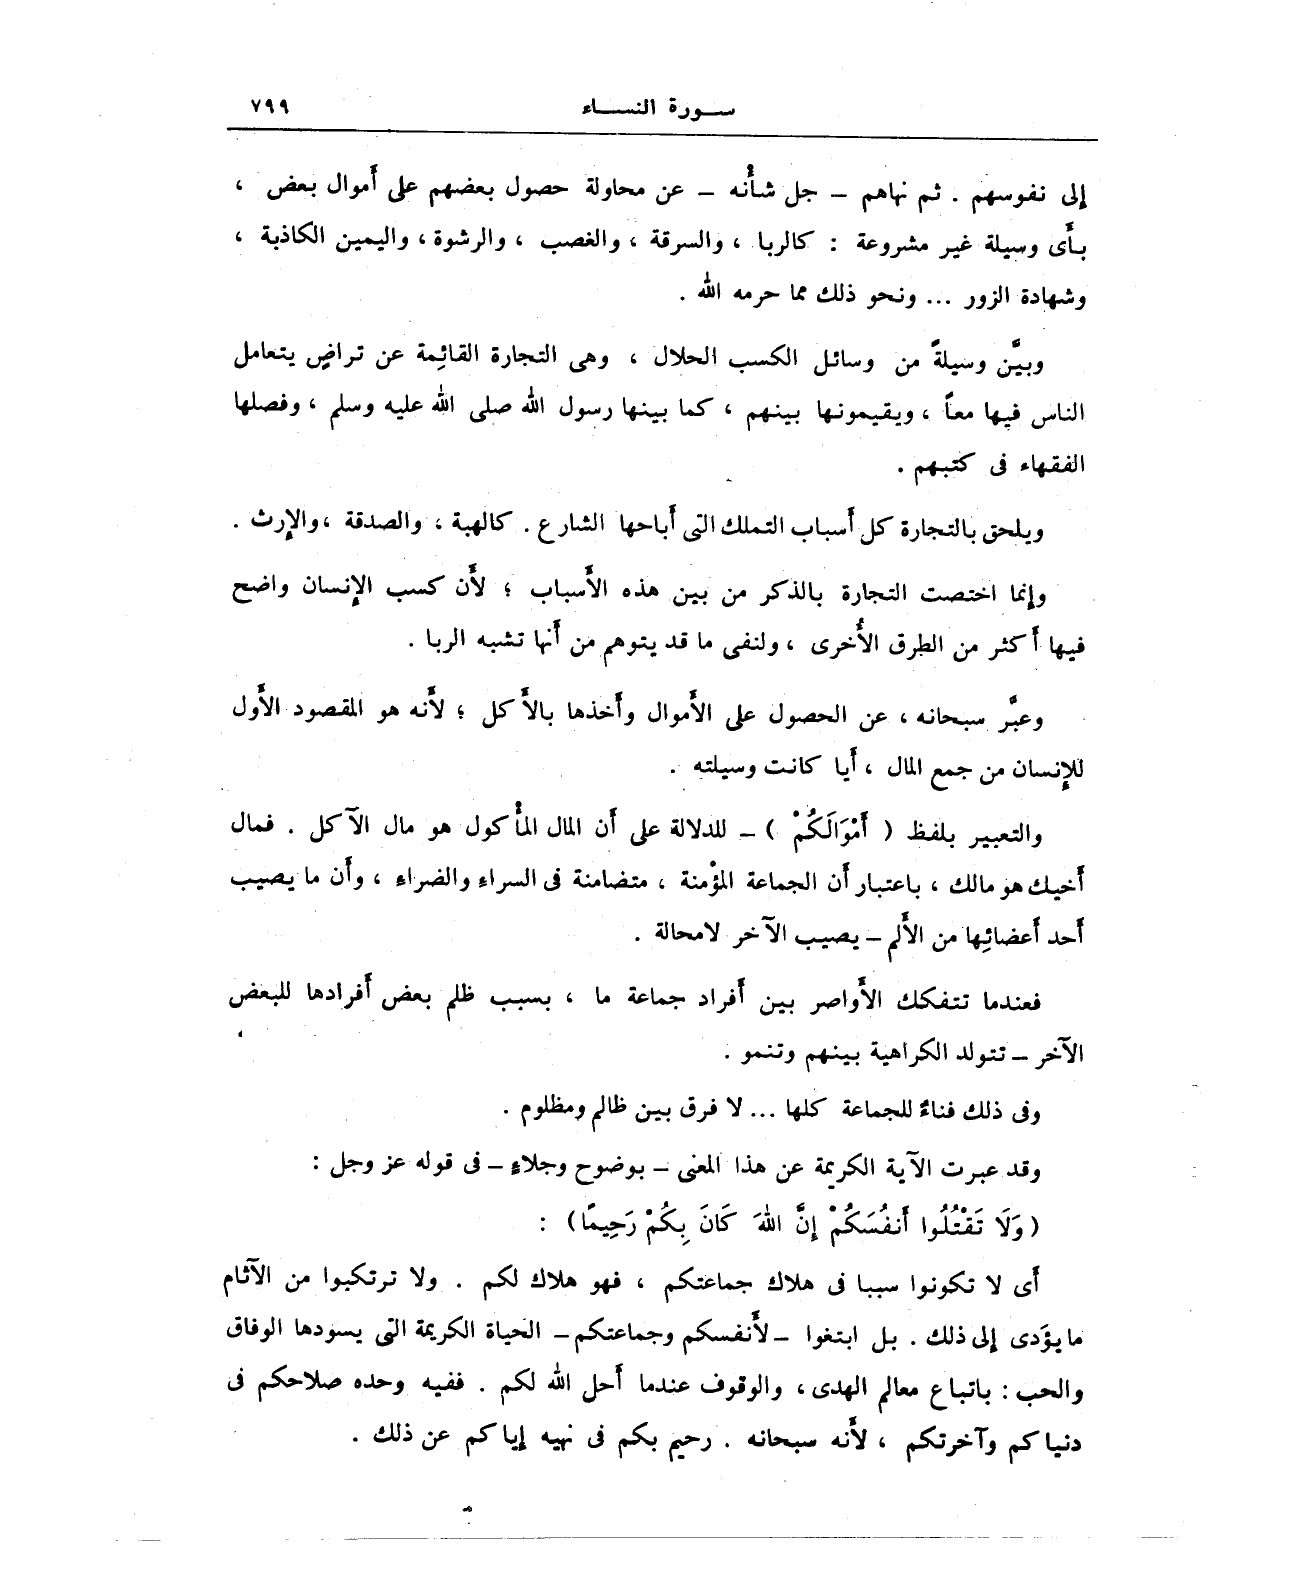 سورة النساء ٧٩٩
إلى نفوسهم . ثم نهاهم – جل شأنه – عن محاولة حصول بعضهم على أموال بعض ،
بأى وسيلة غير مشروعة : كالربا ، والسرقة ، والغصب ، والرشوة ، واليمين الكاذبة ،
وشهادة الزور ... ونحو ذلك مما حرمه الله .
وبيَّن وسيلةً من وسائل الكسب الحلال ، وهى التجارة القائمة عن تراضٍ يتعامل
الناس فيها معاً ، ويقيمونها بينهم ، كما بينها رسول الله صلى الله عليه وسلم ، وفصلها
الفقهاء فى كتبهم .
ويلحق بالتجارة كل أسباب التملك التى أباحها الشارع . كالهبة ، والصدقة ، والإرث .
وإنما اختصت التجارة بالذكر من بين هذه الأسباب ؛ لأن كسب الإنسان واضح
فيها أكثر من الطرق الأُخرى ، ولنفى ما قد يتوهم من أنها تشبه الربا .
وعبَّر سبحانه ، عن الحصول على الأموال وأخذها بالأكل ؛ لأنه هو المقصود الأول
للإنسان من جمع المال ، أيا كانت وسيلته .
والتعبير بلفظ ( أَمْوَالَكُمْ ) – للدلالة على أن المال المأكول هو مال الآكل . فمال
أخيك هو مالك ، باعتبار أن الجماعة المؤمنة ، متضامنة فى السراء والضراء ، وأن ما يصيب
أحد أعضائها من الألم – يصيب الآخر لا محالة .
فعندما تتفكك الأواصر بين أفراد جماعة ما ، بسبب ظلم بعض أفرادها للبعض
الآخر – تتولد الكراهية بينهم وتنمو .
وفى ذلك فناءٌ للجماعة كلها ... لا فرق بين ظالم ومظلوم .
وقد عبرت الآية الكريمة عن هذا المعنى – بوضوح وجلاءٍ – فى قوله عز وجل :
( وَلَا تَقْتُلُوا أَنفُسَكُمْ إِنَّ اللهَ كَانَ بِكُمْ رَحِيمًا ) :
أى لا تكونوا سببا فى هلاك جماعتكم ، فهو هلاك لكم . ولا ترتكبوا من الآثام
ما يؤدى إلى ذلك . بل ابتغوا – لأنفسكم وجماعتكم – الحياة الكريمة التى يسودها الوفاق
والحب : باتباع معالم الهدى ، والوقوف عندما أحل الله لكم . ففيه وحده صلاحكم فى
دنياكم وآخرتكم ، لأنه سبحانه . رحيم بكم فى نهيه إياكم عن ذلك .